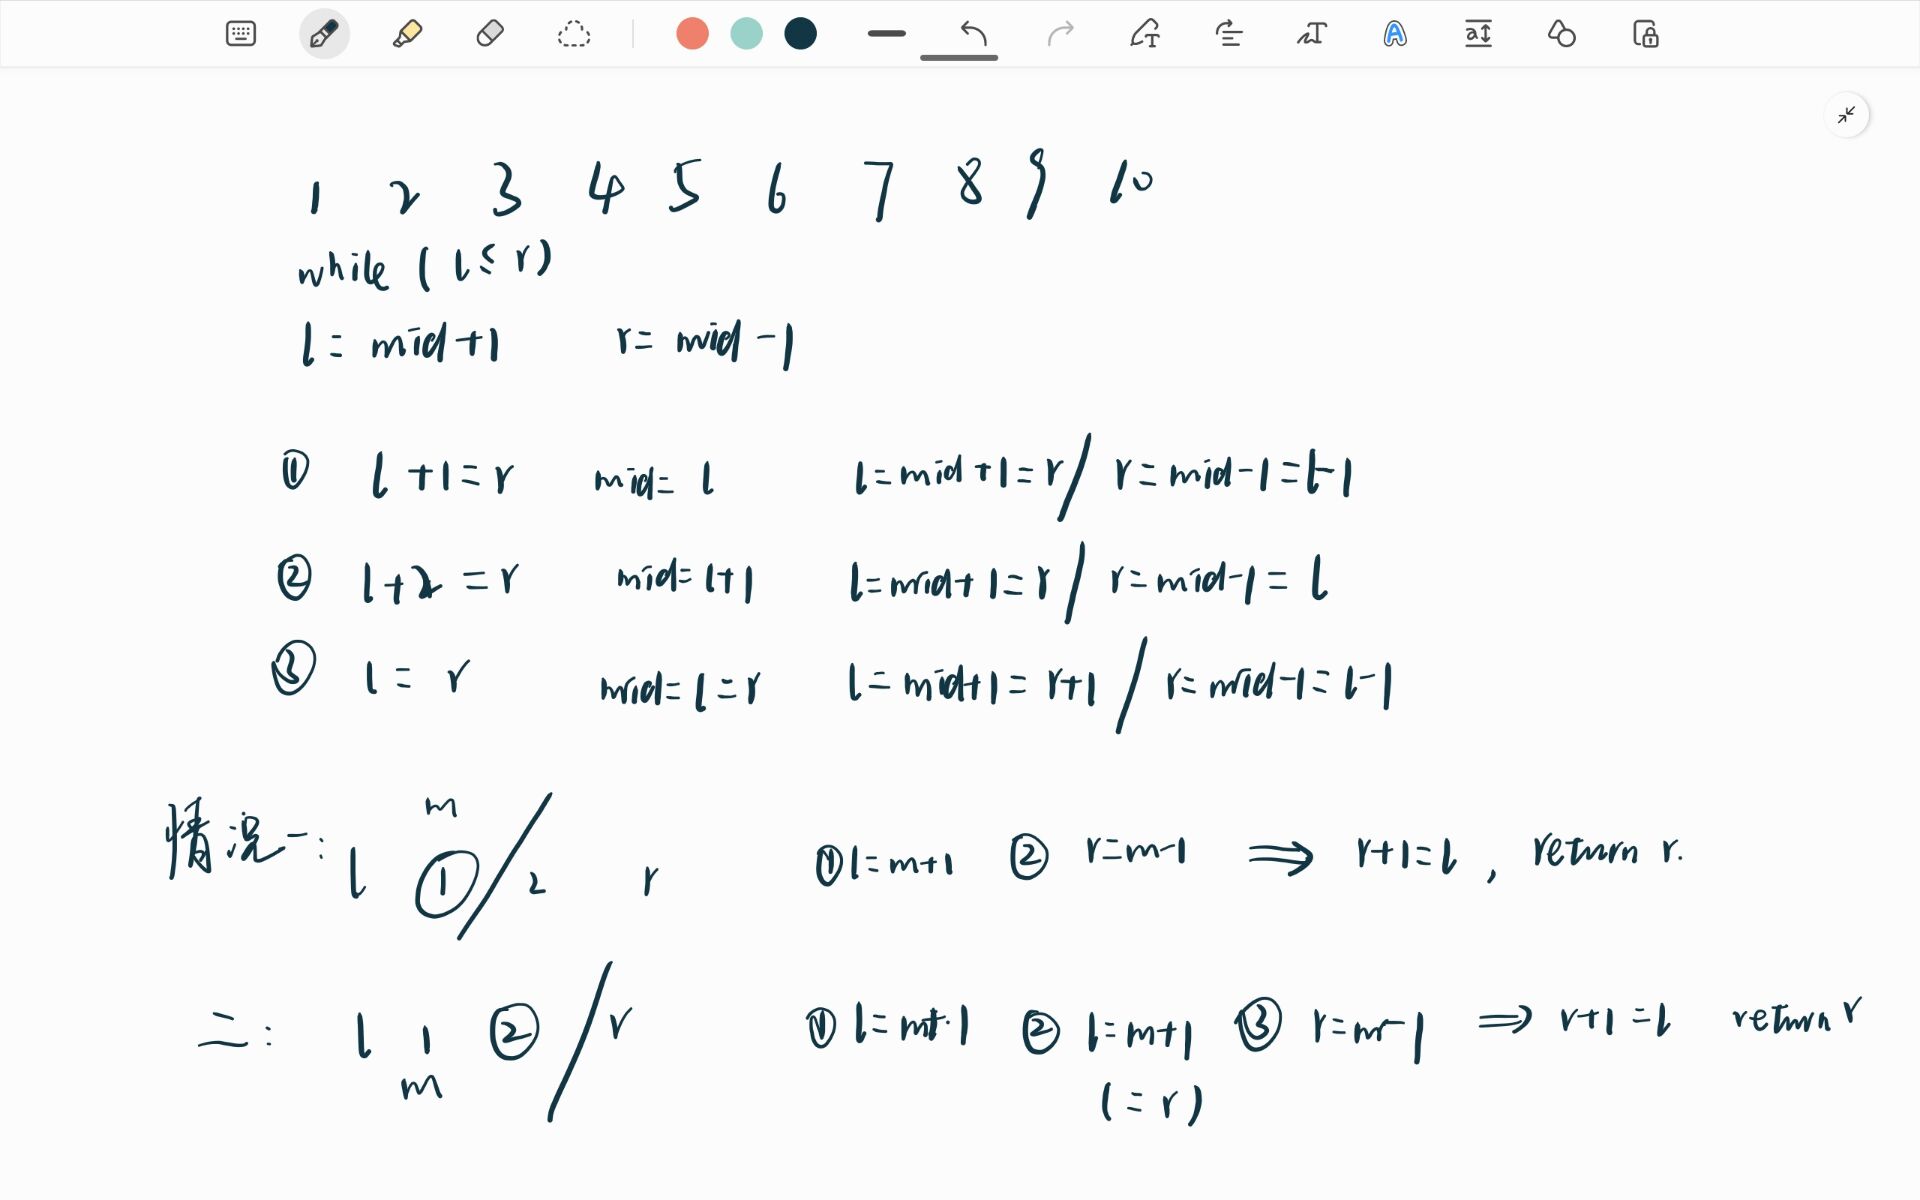 1 2 3 4 5 6 7 8 9 10
while ( l ≤ r )
l = mid+1 r = mid -1
① l +1 = r mid = l l = mid +1 = r / r = mid -1 = l-1
② l+2 = r mid = l+1 l = mid+1 = r / r = mid-1 = l
③ l = r mid = l = r l = mid+1 = r+1 / r = mid-1 = l-1
m
情况一: l ① / 2 r ① l = m+1 ② r = m-1 ⟹ r+1 = l , return r.
二: l 1 ② / r ① l = m+1 ② l = m+1 ③ r = m-1 ⟹ r+1 = l return r
m ( = r )